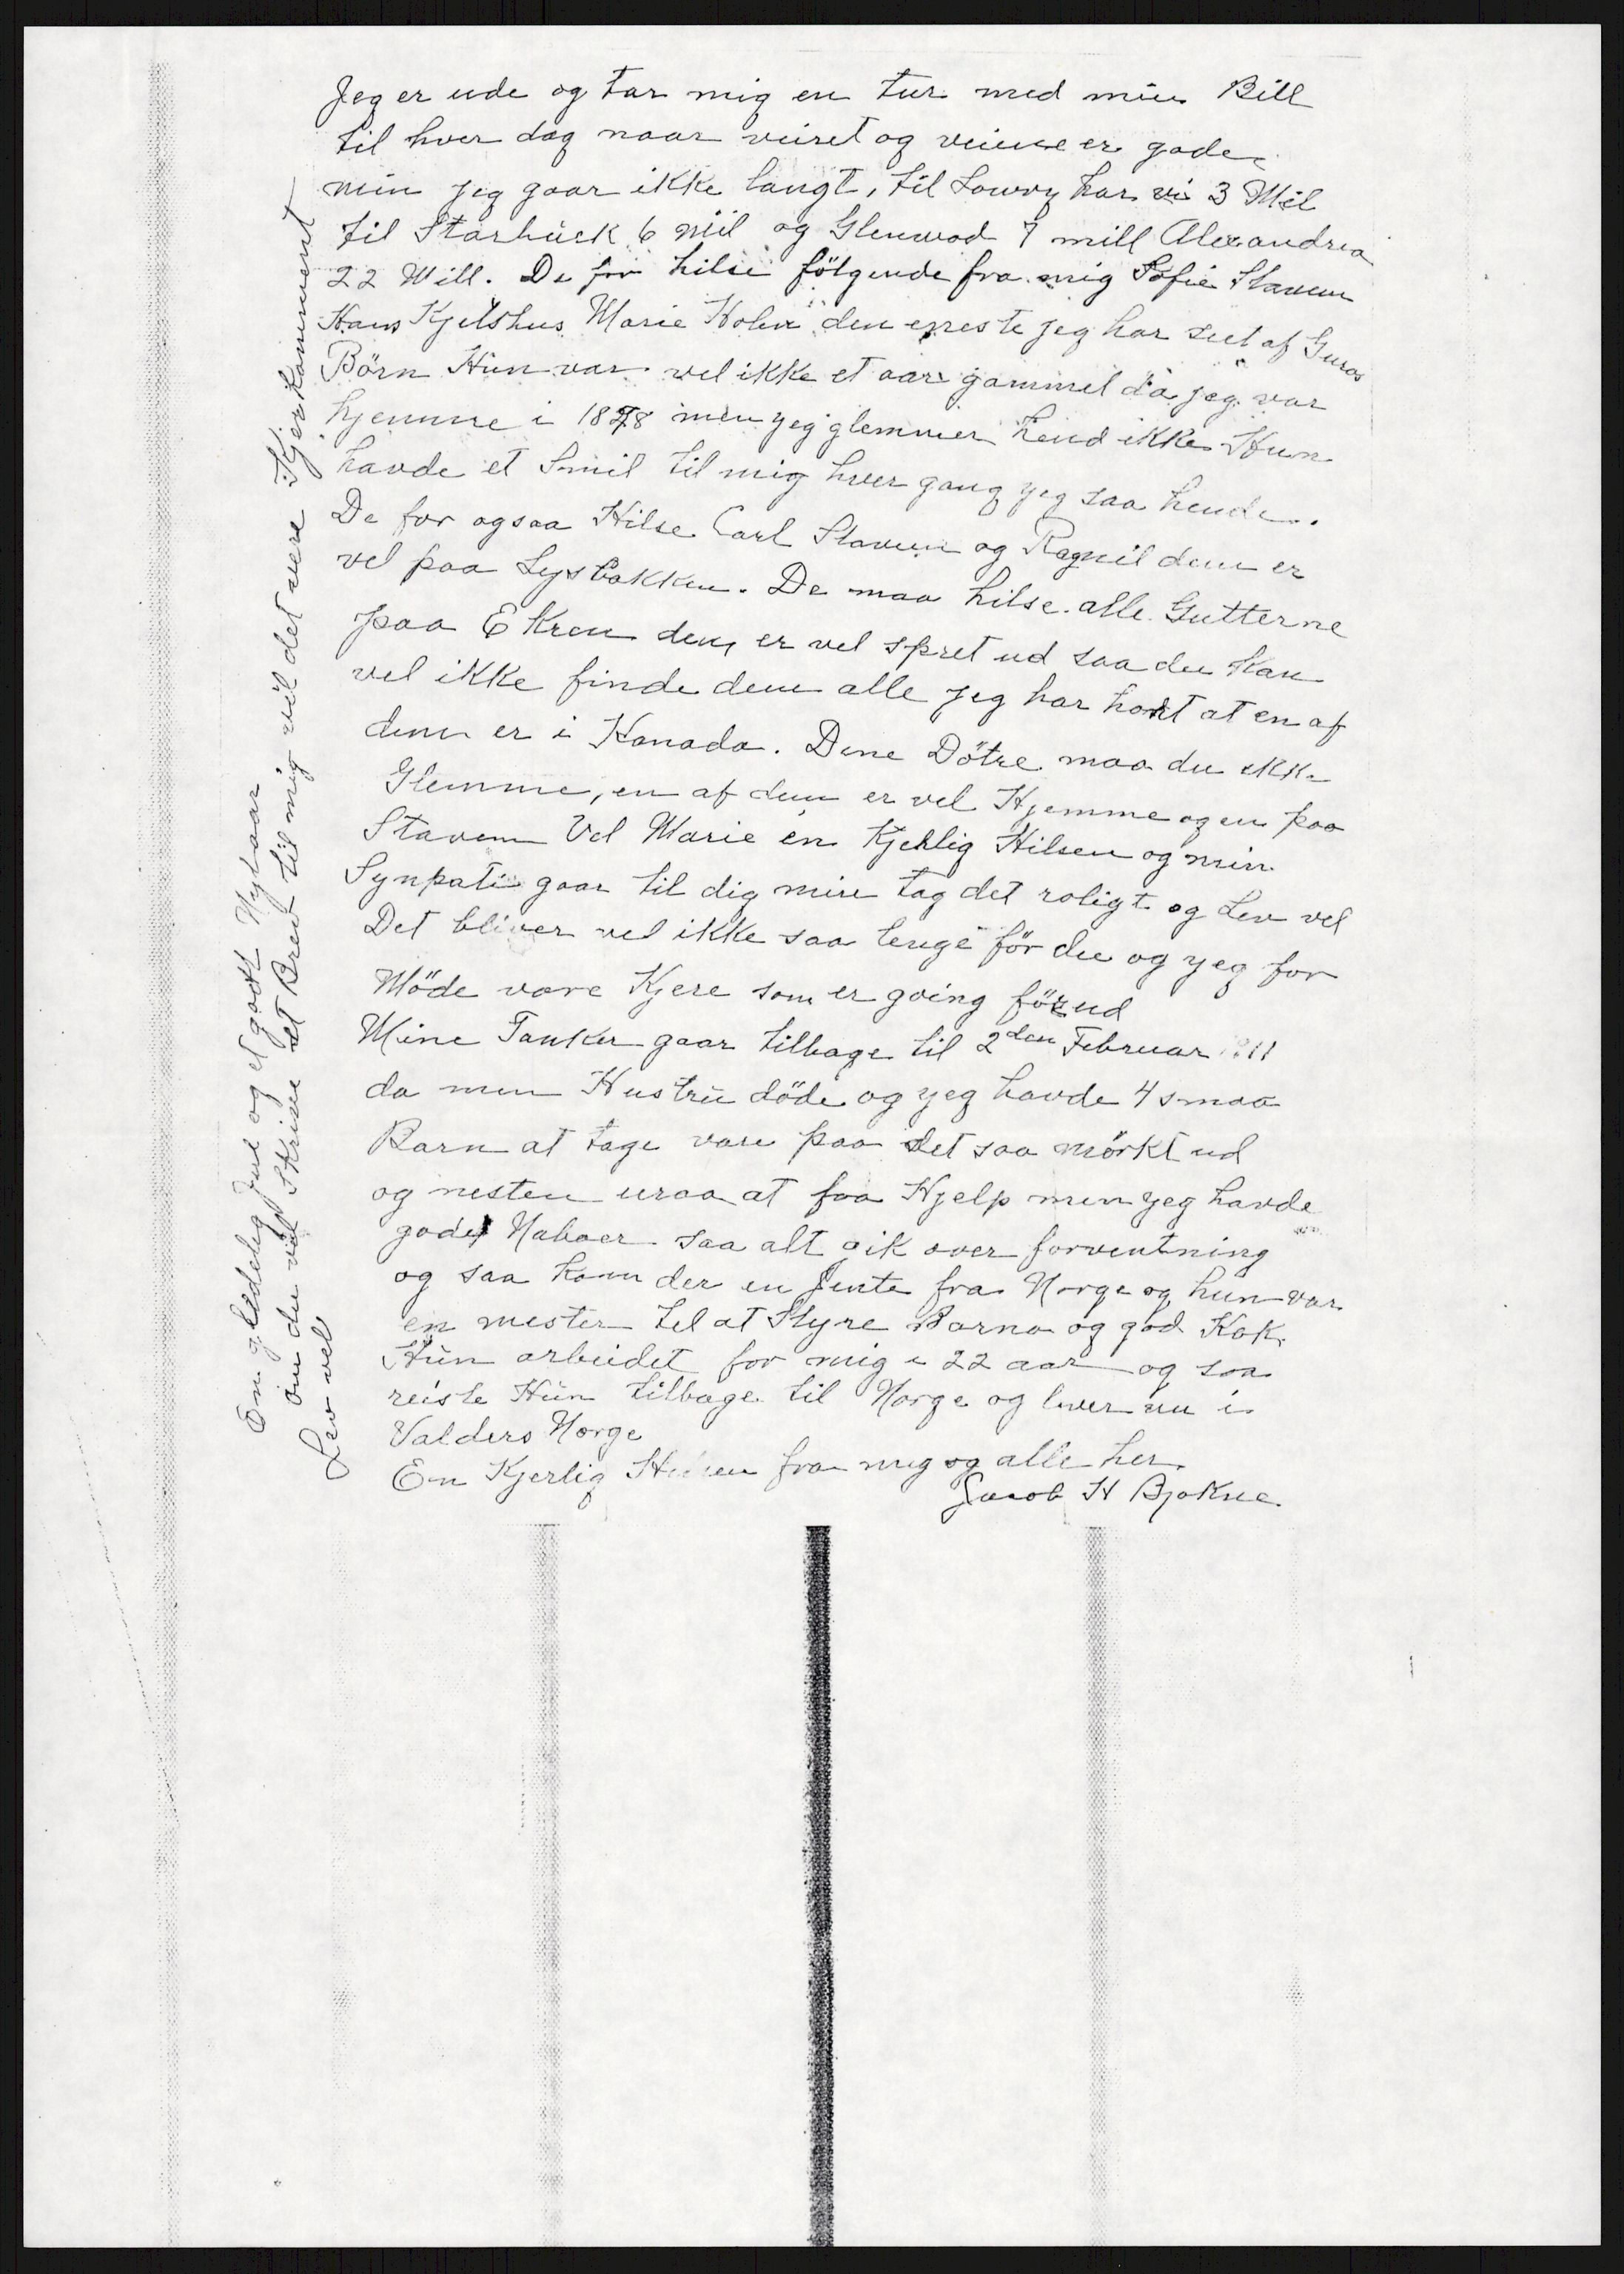 Jeg er ude og tar mig en tur med min Bill
til hver dag naar veiret og veiene er gode
min jeg gaar ikke langt, til Lowry har vi 3 Mil
til Starbuck 6 mil og Glenwod 7 mill Alexandria
22 Mill. De for hilse fölgende fra mig Sofie Staven
Hans Kjelshus Marie Holen den eneste jeg har seet af Guros
Börn Hun var vel ikke et aar gammel da jeg var
hjemme i 1878 men yeg glemmer hend ikke Hun
havde et Smil til mig hver gang yeg saa hende.
De for ogsaa Hilse Carl Staven og Ragnil dem er
vel paa Lysbakken. De maa hilse alle Gutterne
paa Ekren dem er vel spret ud saa du kan
vel ikke finde dem alle jeg har hort at en af
dem er i Kanada. Dine Dötre maa du ikke
Glemme, en af dem er vel Hjemme og en paa
Stavem Vel Marie en Kjerlig Hilsen og min
Synpati gaar til dig min tag det roligt og Lev vel
Det bliver vel ikke saa lenge för du og yeg for
Möde vore Kjere som er going förud
Mine Tanker gaar tilbage til 2den Februar 1911
da min Hustru döde og yeg havde 4 smaa
Barn at tage vare paa det saa mörkt ud
og nesten uraa at faa Hjelp men yeg havde
gode Naboer saa alt gik over forventning
og saa kom der en Jente fra Norge og hun var
en mester til at Styre Barna og god Kok.
Hun arbeidet for mig i 22 aar og saa
reiste Hun tilbage til Norge og lever nu i
Valders Norge
En Kjerlig Hilsen fra mig og alle her.
Jacob H Bjokne
En gledelig Jul og et godt Nytaar
om du vil Skrive et Brev til mig vil det vere Kjerkomment
Lev vel